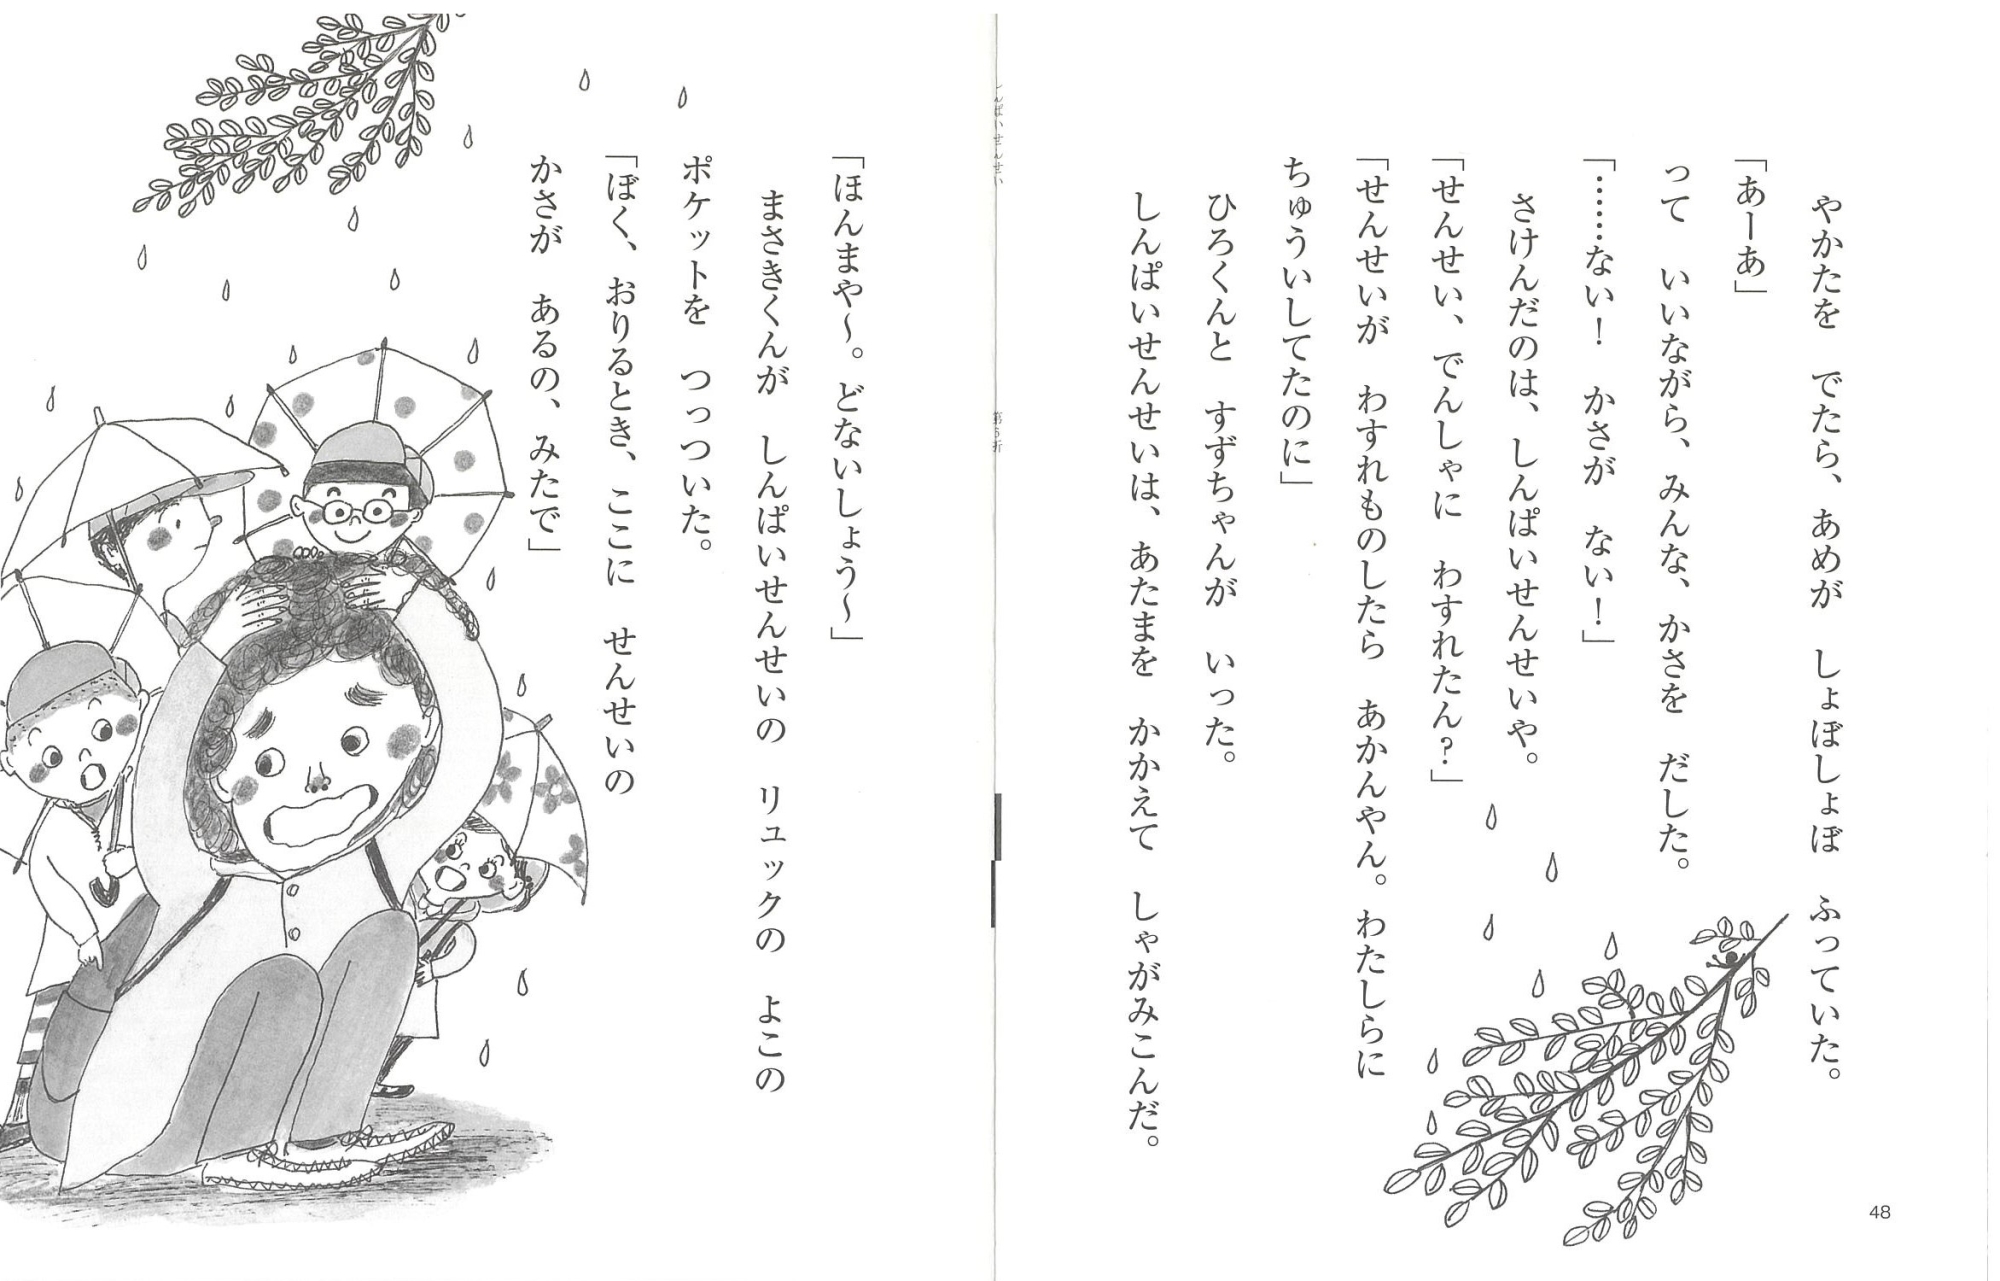 やかたを　でたら、あめが　しょぼしょぼ　ふっていた。
「あーあ」
って　いいながら、みんな、かさを　だした。
「……ない！　かさが　ない！」
さけんだのは、しんぱいせんせいや。
「せんせい、でんしゃに　わすれたん？」
「せんせいが　わすれものしたら　あかんやん。わたしらに
ちゅういしてたのに」
ひろくんと　すずちゃんが　いった。
しんぱいせんせいは、あたまを　かかえて　しゃがみこんだ。
48
「ほんまや〜。どないしょう〜」
まさきくんが　しんぱいせんせいの　リュックの　よこの
ポケットを　つっついた。
「ぼく、おりるとき、ここに　せんせいの
かさが　あるの、みたで」